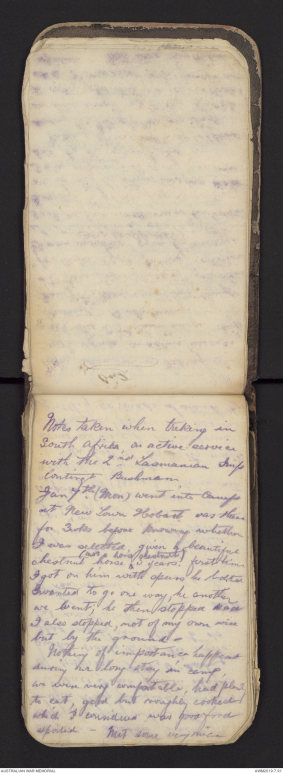 Notes taken when treking in
South Africa on active service
with the 2nd Tasmanian Imp
Contingt Bushmen
Jan 7th (Mon) went into Camp
at New Town Hobart was there
for 3 wks before knowing whether
I was selected, given a beautiful
chestnut horse years. first time
I got on him with spurs he bolted
I wanted to go one way, he another
we went, he then stopped
I also stopped, not of my own wish
but by the ground.
Nothing of importance happened
during our long stay in camp
we were very comfortable, had plenty
to eat, good but roughly cooked
which I considered was good food
spoiled - Met some very nice
AUSTRALIAN WAR MEMORIAL
AWM2019.7.32